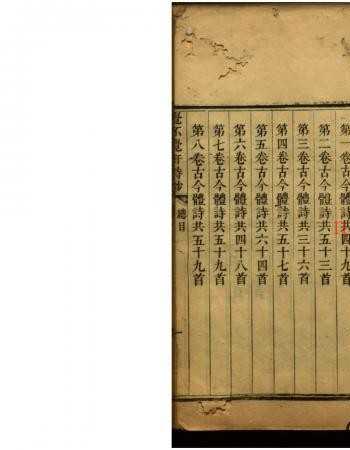 第一卷古今體詩共四十九首
第二卷古今體詩共五十三首
第三卷古今體詩共三十六首
第四卷古今體詩共五十七首
第五卷古今體詩共六十四首
第六卷古今體詩共四十八首
第七卷古今體詩共五十九首
第八卷古今體詩共五十九首
總目